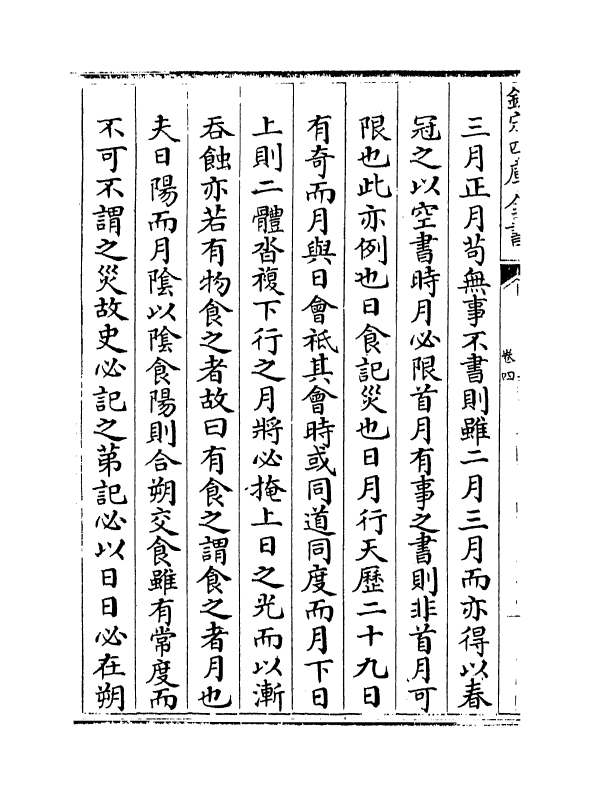 欽定四庫全書
卷四
三月正月苟無事不書則雖二月三月而亦得以春
冠之以空書時月必限首月有事之書則非首月可
限也此亦例也日食記災也日月行天歷二十九日
有奇而月與日會祗其會時或同道同度而月下日
上則二體沓複下行之月將必掩上日之光而以漸
吞蝕亦若有物食之者故曰有食之謂食之者月也
夫日陽而月陰以陰食陽則合朔交食雖有常度而
不可不謂之災故史必記之第記必以日日必在朔